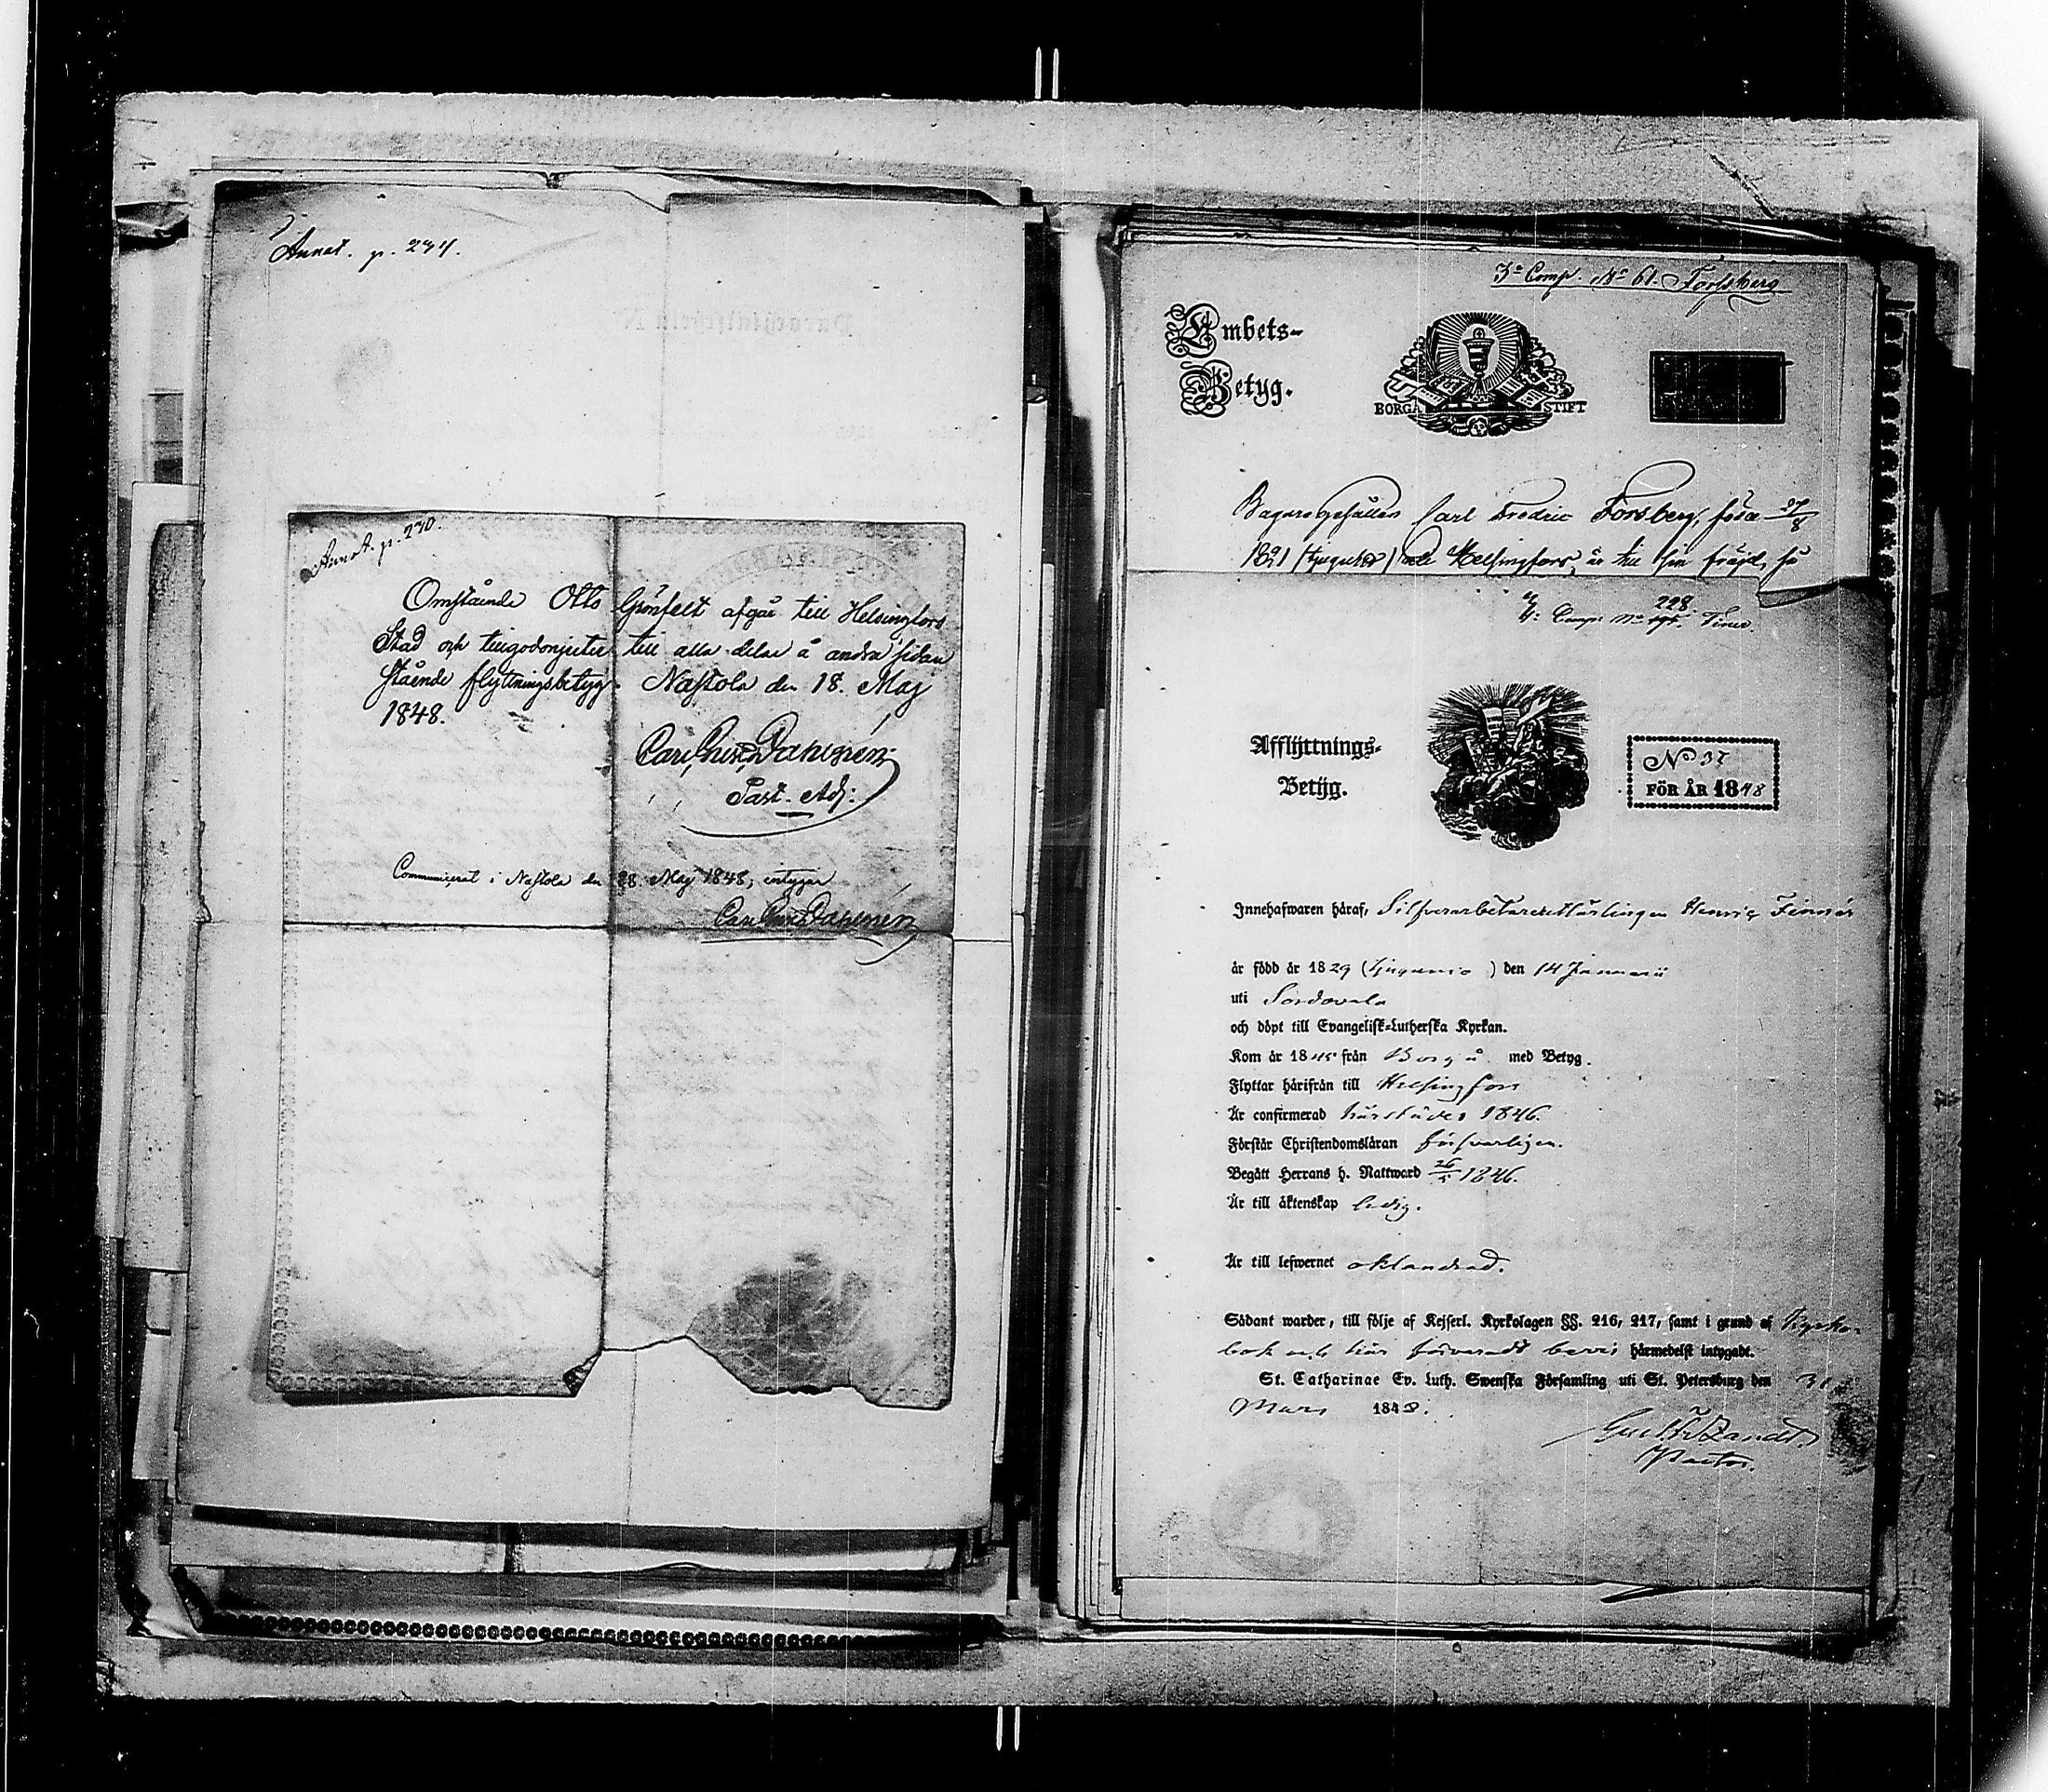 Annot. p. 234.
Annot. p. 230.
Omstående Otto Grönfelt afgår till Helsingfors
Stad och tillgodonjuter till alla delar å andra sidan
stående flyttningsbetyg. Nastola den 18. Maj
1848.
Past. Adj:
Communicerat i Nastola den 28. Maj 1848, intygar
3e Comp. No 61. Forssberg
Embets-
Betyg.
BORGÅ STIFT
Bagaregesällen Carl Fredric Forsberg, född 27/8
1821 (tjuguett) uti Helsingfors, är till sin frägd, så
228.
Comp: No Finer.
Afflyttnings-
Betyg.
No 37
FÖR ÅR 1848
Innehafwaren häraf, Silfverarbetarelärlingen Henric Finnér
är född år 1829 (tjugunio) den 14 Januarii
uti Sordovala
och döpt till Evangelisk-Lutherska Kyrkan.
Kom år 1845 från Borgå med Betyg.
Flyttar härifrån till Helsingfors
Är confirmerad härstädes 1846.
Förstår Christendomsläran försvarligen.
Begått Herrans h. Nattward 26/5 1846.
Är till äktenskap ledig.
Är till lefwernet oklandrad.
Sådant warder, till följe af Kejserl. Kyrkolagen §§. 216, 217, samt i grund af Kyrko-
bok och här förvaradt bevis härmedelst intygadt.
St. Catharinae Ev. Luth. Swenska Församling uti St. Petersburg den 31
Mars 1848.
Pastor.